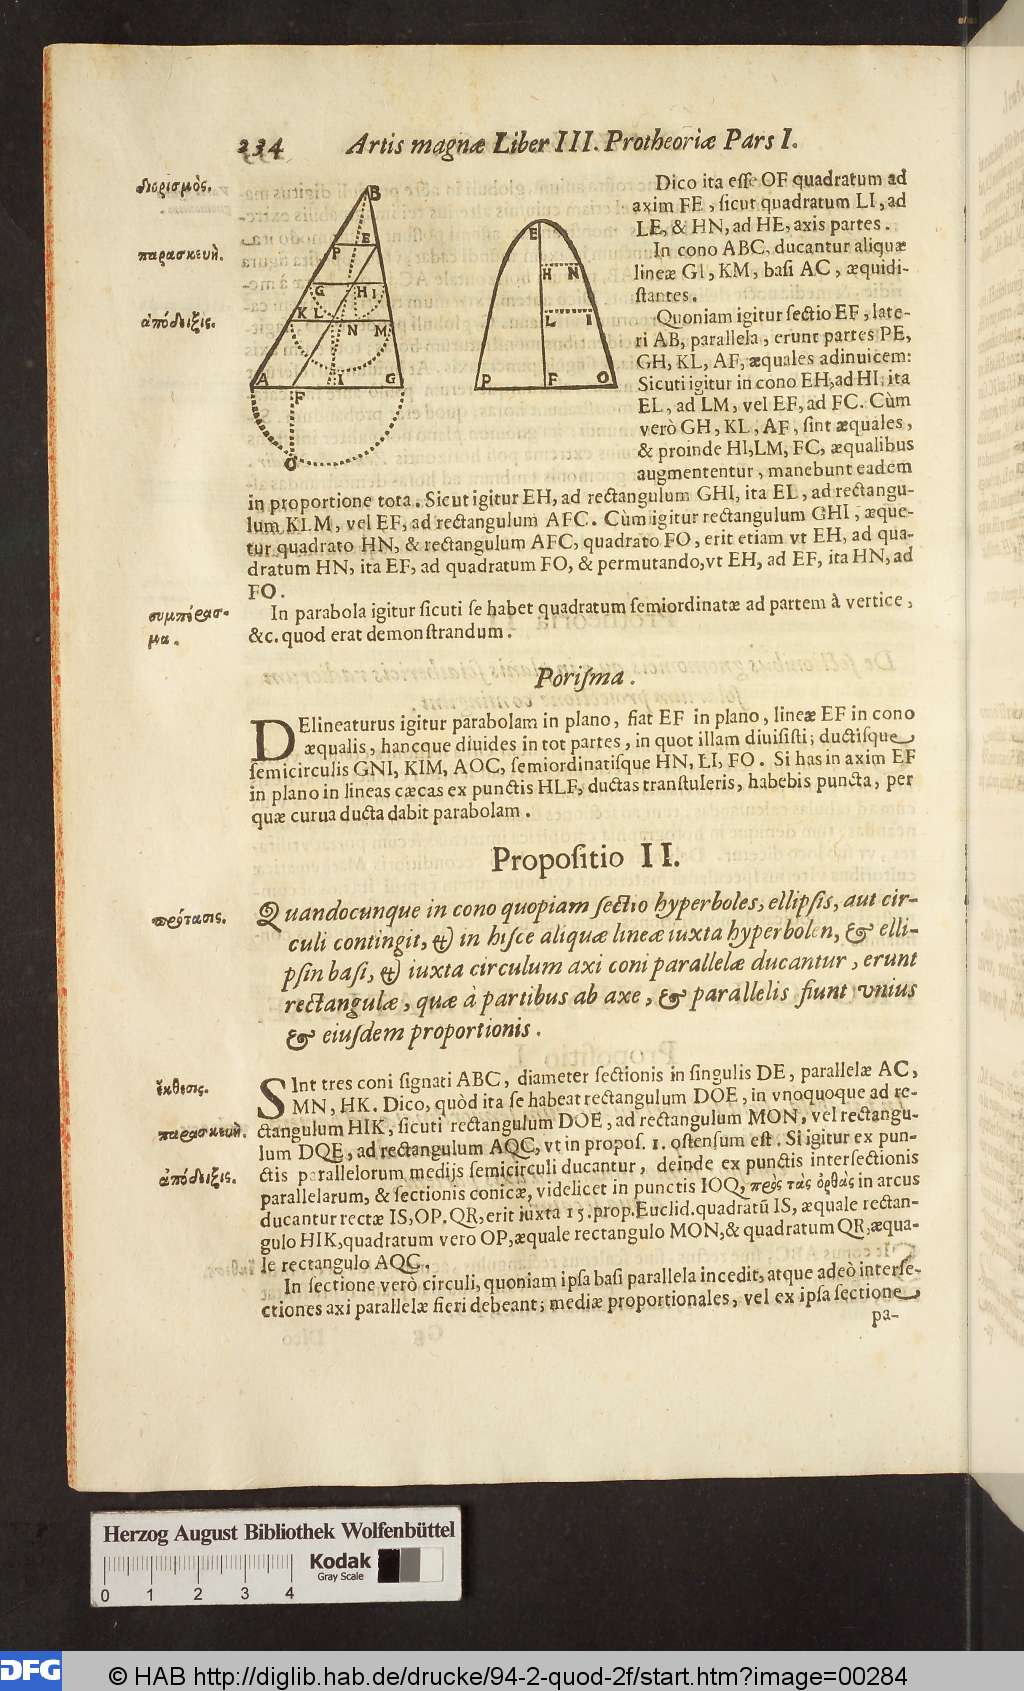 234 Artis magnæ Liber III. Protheoriæ Pars I.
διορισμὸς.
παρασκευὴ.
ἀπόδειξις.
B
E
P
G
H I
K L
N M
A I G
F
O
E
H N
L I
P F O
Dico ita eſſe OF quadratum ad
axim FE, ſicut quadratum LI, ad
LE, & HN, ad HE, axis partes.
In cono ABC, ducantur aliquæ
lineæ GI, KM, baſi AC, æquidi-
ſtantes.
Quoniam igitur ſectio EF, late-
ri AB, parallela, erunt partes PE,
GH, KL, AF, æquales adinuicem:
Sicuti igitur in cono EH, ad HI, ita
EL, ad LM, vel EF, ad FC. Cùm
verò GH, KL, AF, ſint æquales,
& proinde HI, LM, FC, æqualibus
augmententur, manebunt eadem
in proportione tota. Sicut igitur EH, ad rectangulum GHI, ita EL, ad rectangu-
lum KLM, vel EF, ad rectangulum AFC. Cùm igitur rectangulum GHI, æque-
tur quadrato HN, & rectangulum AFC, quadrato FO, erit etiam vt EH, ad qua-
dratum HN, ita EF, ad quadratum FO, & permutando, vt EH, ad EF, ita HN, ad
FO.
συμπέρασ-
μα.
In parabola igitur ſicuti ſe habet quadratum ſemiordinatæ ad partem à vertice,
&c. quod erat demonſtrandum.
Poriſma.
DElineaturus igitur parabolam in plano, fiat EF in plano, lineæ EF in cono
æqualis, hancque diuides in tot partes, in quot illam diuiſiſti; ductiſque
ſemicirculis GNI, KIM, AOC, ſemiordinatiſque HN, LI, FO. Si has in axim EF
in plano in lineas cæcas ex punctis HLF, ductas tranſtuleris, habebis puncta, per
quæ curua ducta dabit parabolam.
Propoſitio II.
πρότασις.
Quandocunque in cono quopiam ſectio hyperboles, ellipſis, aut cir-
culi contingit, & in hiſce aliquæ lineæ iuxta hyperbolen, & elli-
pſin baſi, & iuxta circulum axi coni parallelæ ducantur, erunt
rectangulæ, quæ à partibus ab axe, & parallelis fiunt vnius
& eiuſdem proportionis.
ἔκθεσις.
παρασκευὴ.
ἀπόδειξις.
SInt tres coni ſignati ABC, diameter ſectionis in ſingulis DE, parallelæ AC,
MN, HK. Dico, quòd ita ſe habeat rectangulum DOE, in vnoquoque ad re-
ctangulum HIK, ſicuti rectangulum DOE, ad rectangulum MON, vel rectangu-
lum DQE, ad rectangulum AQC, vt in propoſ. 1. oſtenſum eſt. Si igitur ex pun-
ctis parallelorum medijs ſemicirculi ducantur, deinde ex punctis interſectionis
parallelarum, & ſectionis conicæ, videlicet in punctis IOQ, πρὸς τὰς ὀρθὰς in arcus
ducantur rectæ IS, OP. QR, erit iuxta 15. prop. Euclid. quadratū IS, æquale rectan-
gulo HIK, quadratum vero OP, æquale rectangulo MON, & quadratum QR, æqua-
le rectangulo AQC.
In ſectione verò circuli, quoniam ipſa baſi parallela incedit, atque adeò interſe-
ctiones axi parallelæ fieri debeant; mediæ proportionales, vel ex ipſa ſectione
pa-
Herzog August Bibliothek Wolfenbüttel
Kodak
Gray Scale
0 1 2 3 4
DFG
© HAB http://diglib.hab.de/drucke/94-2-quod-2f/start.htm?image=00284